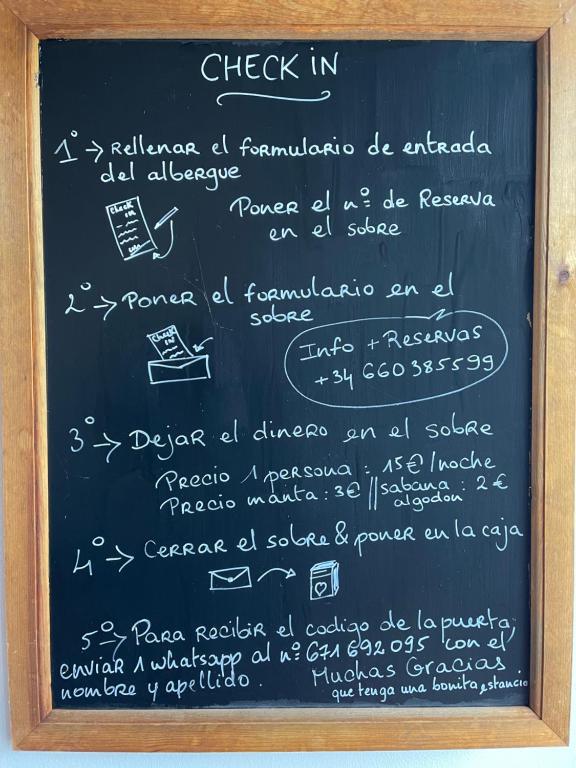 CHECK iN
1° → Rellenar el formulario de entrada
del albergue
Check
in
Poner el nº de Reserva
en el sobre
2° → Poner el formulario en el
sobre
Check
in
Info + Reservas
+34 660 385599
3° → Dejar el dinero en el sobre
Precio 1 persona : 15€/noche
Precio manta : 3€ // sabana : 2€
algodon
4° → Cerrar el sobre & poner en la caja
5° → Para recibir el codigo de la puerta,
enviar 1 whatsapp al nº 671 692 095 con el
nombre y apellido.
Muchas Gracias
que tenga una bonita estancia